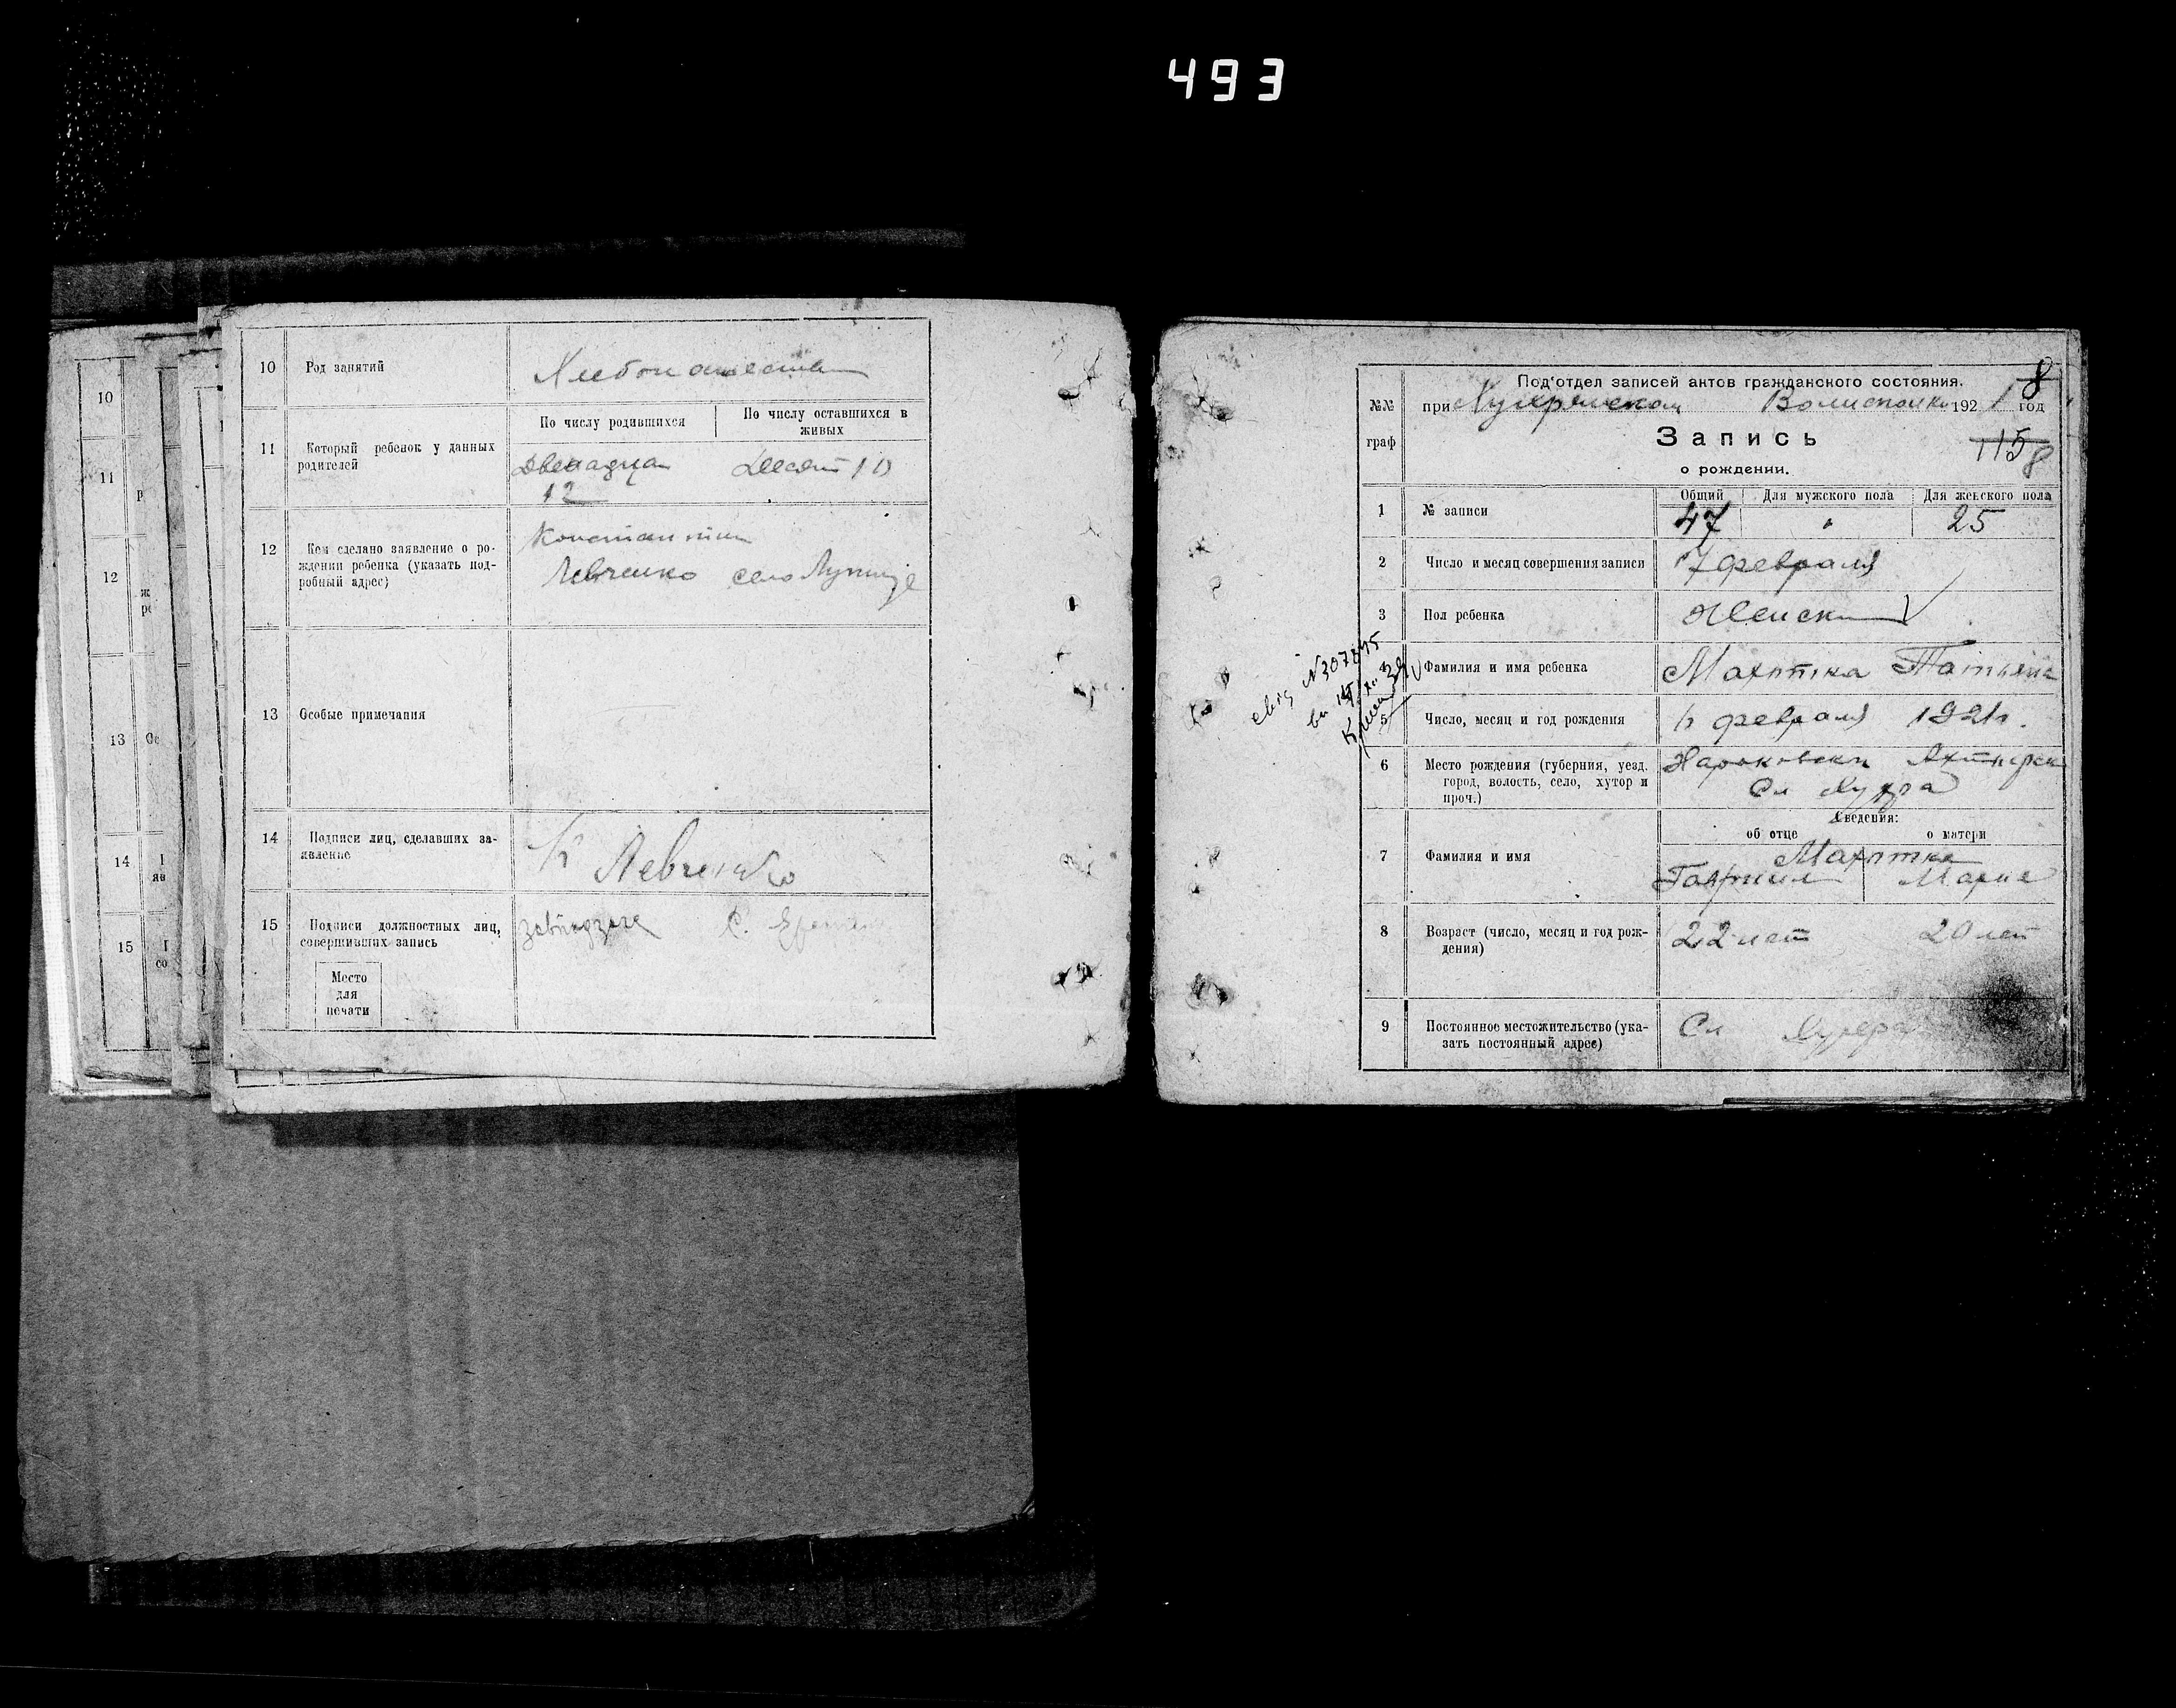 493
10
11
р
12
ж
ре
13
Ос
14
яв
15
со
10 Род занятий
11 Который ребенок у данных родителей
По числу родившихся
По числу оставшихся в живых
Двенадцат
12
Десят 10
12 Кем сделано заявление о ро-
ждении ребенка (указать под-
робный адрес)
Константин
Левченко село
13 Особые примечания
14 Подписи лиц, сделавших за-
явление
К Левченко
15 Подписи должностных лиц,
совершивших запись
С.
Место
для
печати
8
№№
граф
Под'отдел записей актов гражданского состояния.
при 1921 год
Запись
о рождении.
115
8
Общий Для мужского пола Для женского пола
1 № записи 47 " 25
2 Число и месяц совершения записи 7 февраля
3 Пол ребенка Женски
свид N307845
4 Фамилия и имя ребенка Махотка Татьяна
5 Число, месяц и год рождения февраля 1921г.
6 Место рождения (губерния, уезд,
город, волость, село, хутор и
проч.)
Харьковски Ахтырск
Сл
Сведения:
об отце о матери
7 Фамилия и имя
Махотка
Гавриил Мария
8 Возраст (число, месяц и год рож-
дения)
22 лет 20 лет
9 Постоянное местожительство (ука-
зать постоянный адрес)
Сл